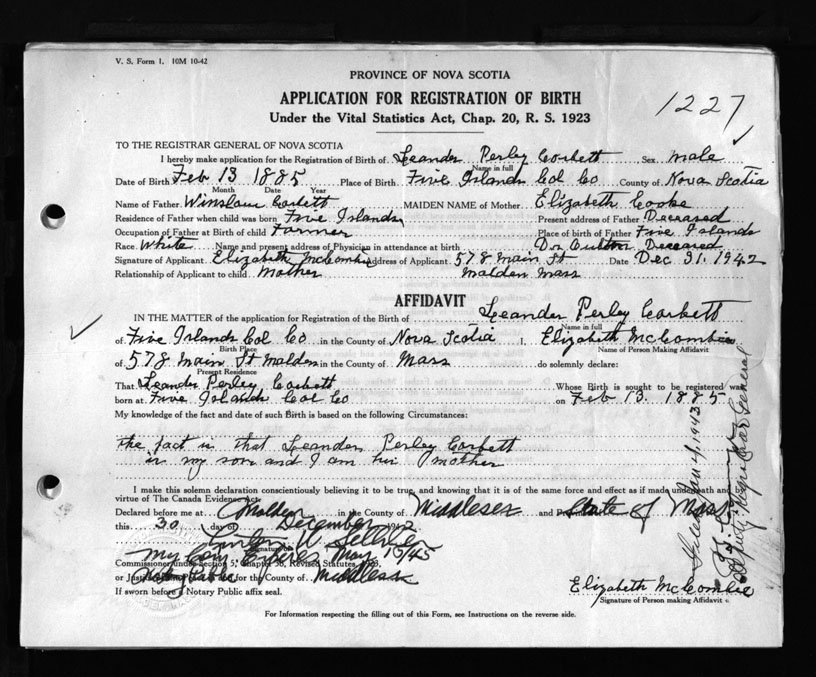 V. S. Form 1. 10M 10-42
PROVINCE OF NOVA SCOTIA
APPLICATION FOR REGISTRATION OF BIRTH
Under the Vital Statistics Act, Chap. 20, R. S. 1923
1227
TO THE REGISTRAR GENERAL OF NOVA SCOTIA
I hereby make application for the Registration of Birth of Leander Perley Corbett Sex Male
Name in full
Date of Birth Feb 13 1885 Place of Birth Five Islands Col Co County of Nova Scotia
Month Date Year
Name of Father Winslow Corbett MAIDEN NAME of Mother Elizabeth Cooke
Residence of Father when child was born Five Islands Present address of Father Deceased
Occupation of Father at Birth of child Farmer Place of birth of Father Five Islands
Race White Name and present address of Physician in attendance at birth Dr Deceased
Signature of Applicant Elizabeth McCombie Address of Applicant 578 Main St Date Dec 31. 1942
Relationship of Applicant to child Mother Malden Mass
AFFIDAVIT
IN THE MATTER of the application for Registration of the Birth of Leander Perley Corbett
Name in full
of Five Islands Col Co in the County of Nova Scotia I, Elizabeth McCombie
Birth Place Name of Person Making Affidavit
of 578 Main St Malden in the County of Mass do solemnly declare:
Present Residence
That Leander Perley Corbett Whose Birth is sought to be registered was
born at Five Islands Col Co on Feb 13. 1885
My knowledge of the fact and date of such Birth is based on the following Circumstances:
the fact is that Leander Perley Corbett
is my son and I am his mother
I make this solemn declaration conscientiously believing it to be true, and knowing that it is of the same force and effect as if made under oath and
virtue of The Canada Evidence Act.
Declared before me at Malden in the County of Middlesex and State of Mass
this 30 day of December 1942
My Com Expires May 15/45
Commissioner under Section 5, Chapter 38, Revised Statutes
or Justice Notary Public for the County of Middlesex
If sworn before a Notary Public affix seal.
Elizabeth McCombie
Signature of Person making Affidavit
For Information respecting the filling out of this Form, see Instructions on the reverse side.
Jan 4, 1943
Deputy Registrar General